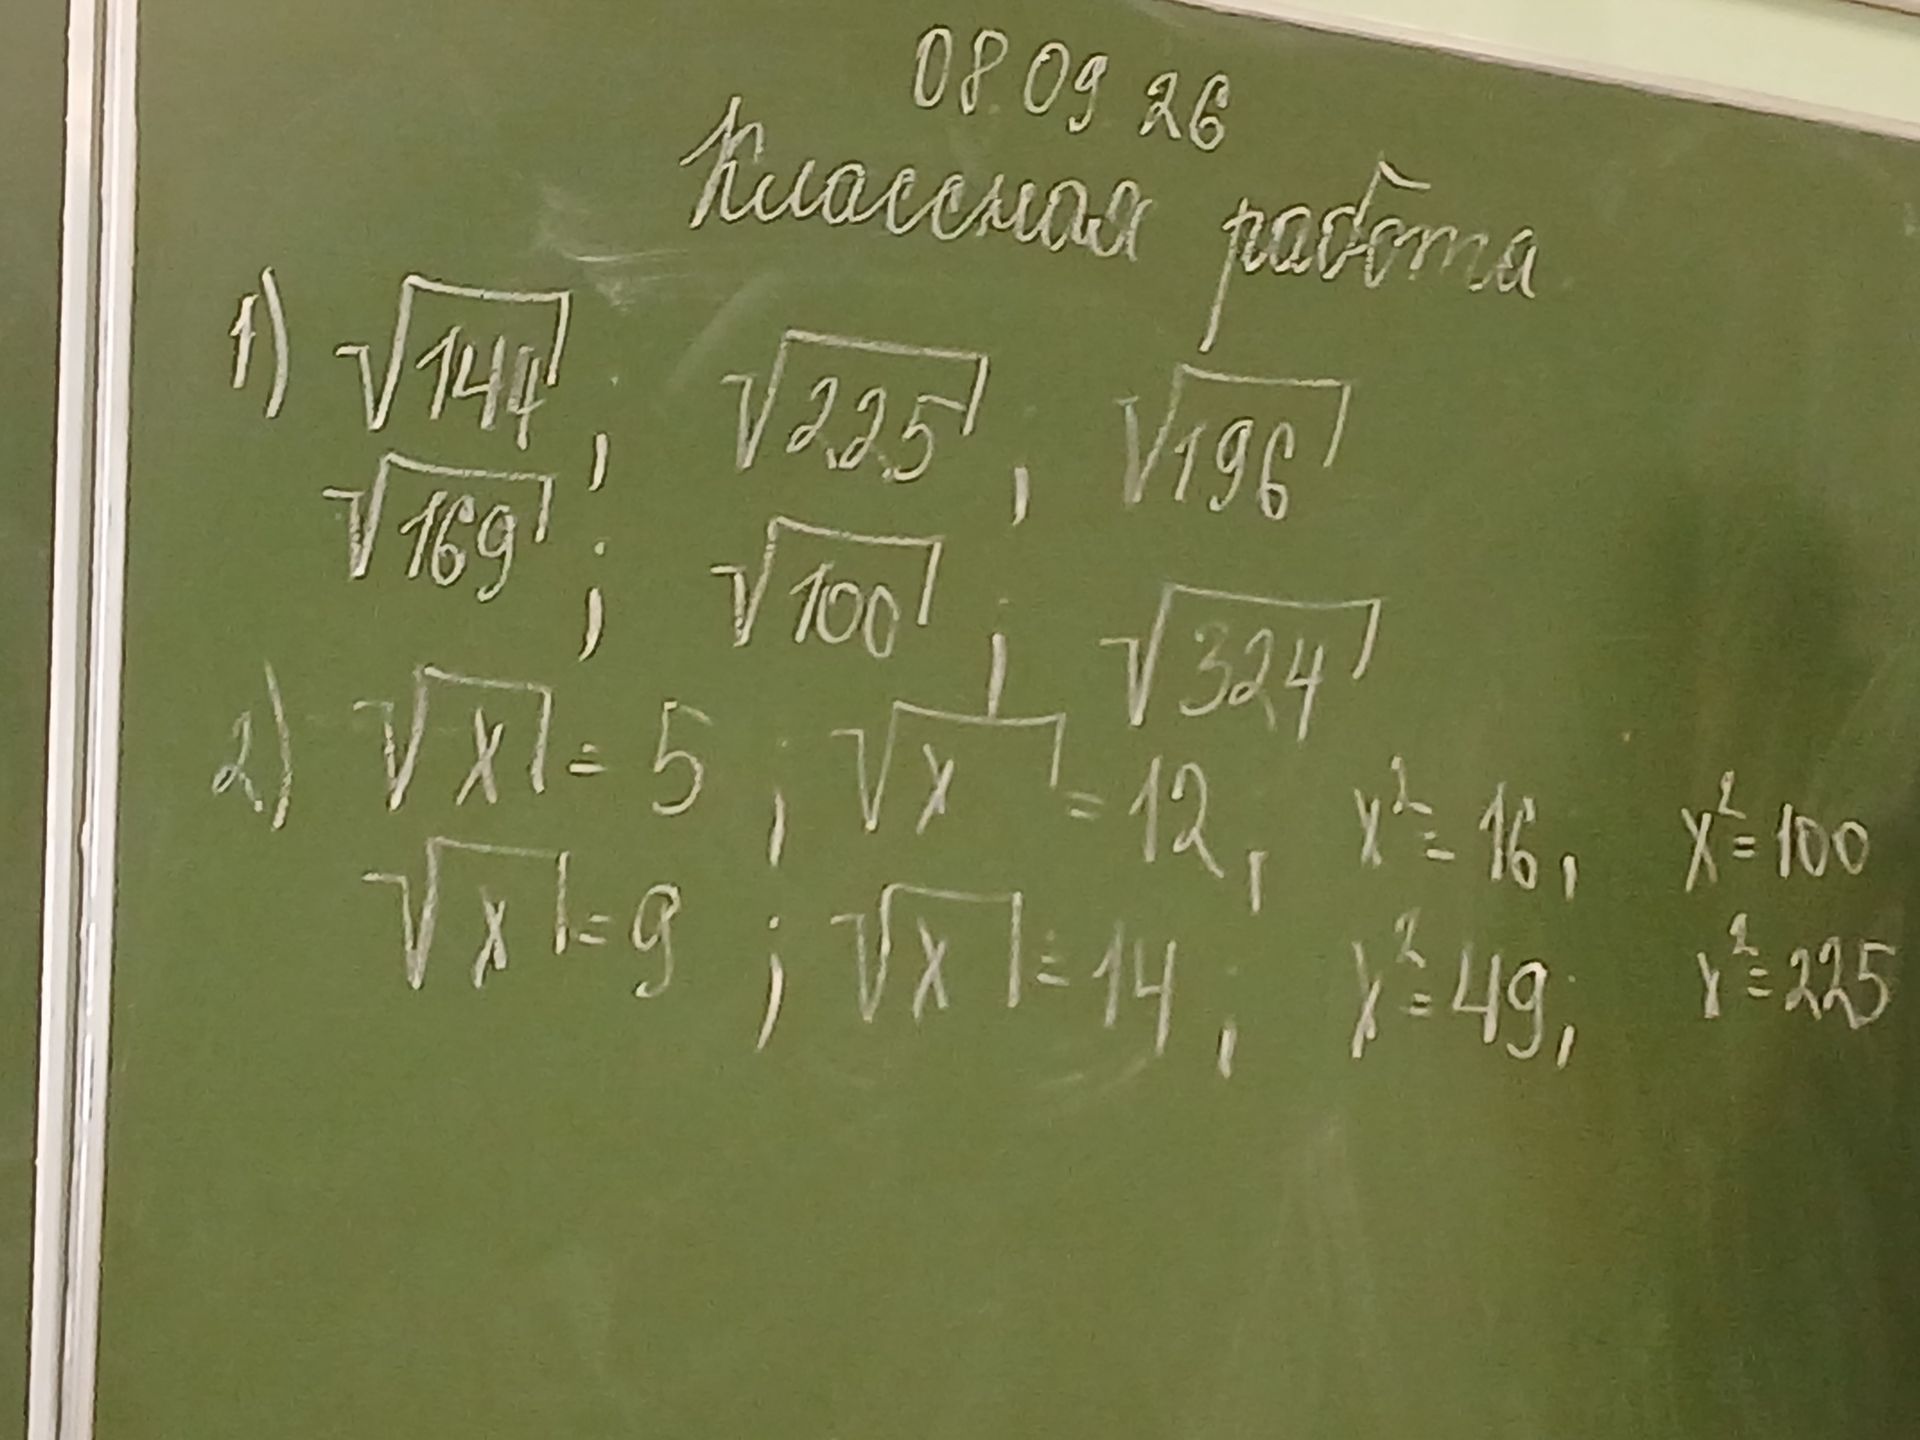 08.09 26
Классная работа
1) √144; √225; √196
√169; √100; √324
2) √x = 5; √x = 12, x² = 16, x² = 100
√x = 9; √x = 14, x² = 49; x² = 225